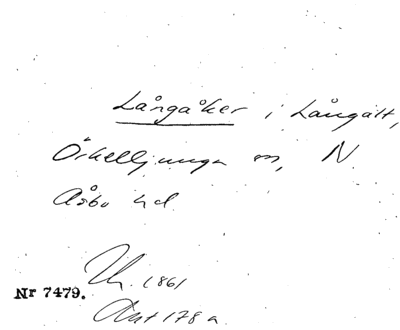 Långåker i Långalt,
Örkelljunga sn, N.
Åsbo hd.
Uk. 1861
Nr 7479.
Akt 178 a.